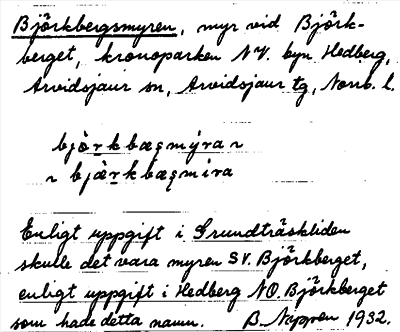 Björkbergsmyren, myr vid Björk-
berget, kronoparken NV. byn Hedberg,
Arvidsjaur sn, Arvidsjaur tg, Norrb. l.
bjòrkbægmýra ~
~ bjàrkbægmira
Enligt uppgift i Grundträskliden
skulle det vara myren SV. Björkberget,
enligt uppgift i Hedberg NO. Björkberget
som hade detta namn. B 1932.